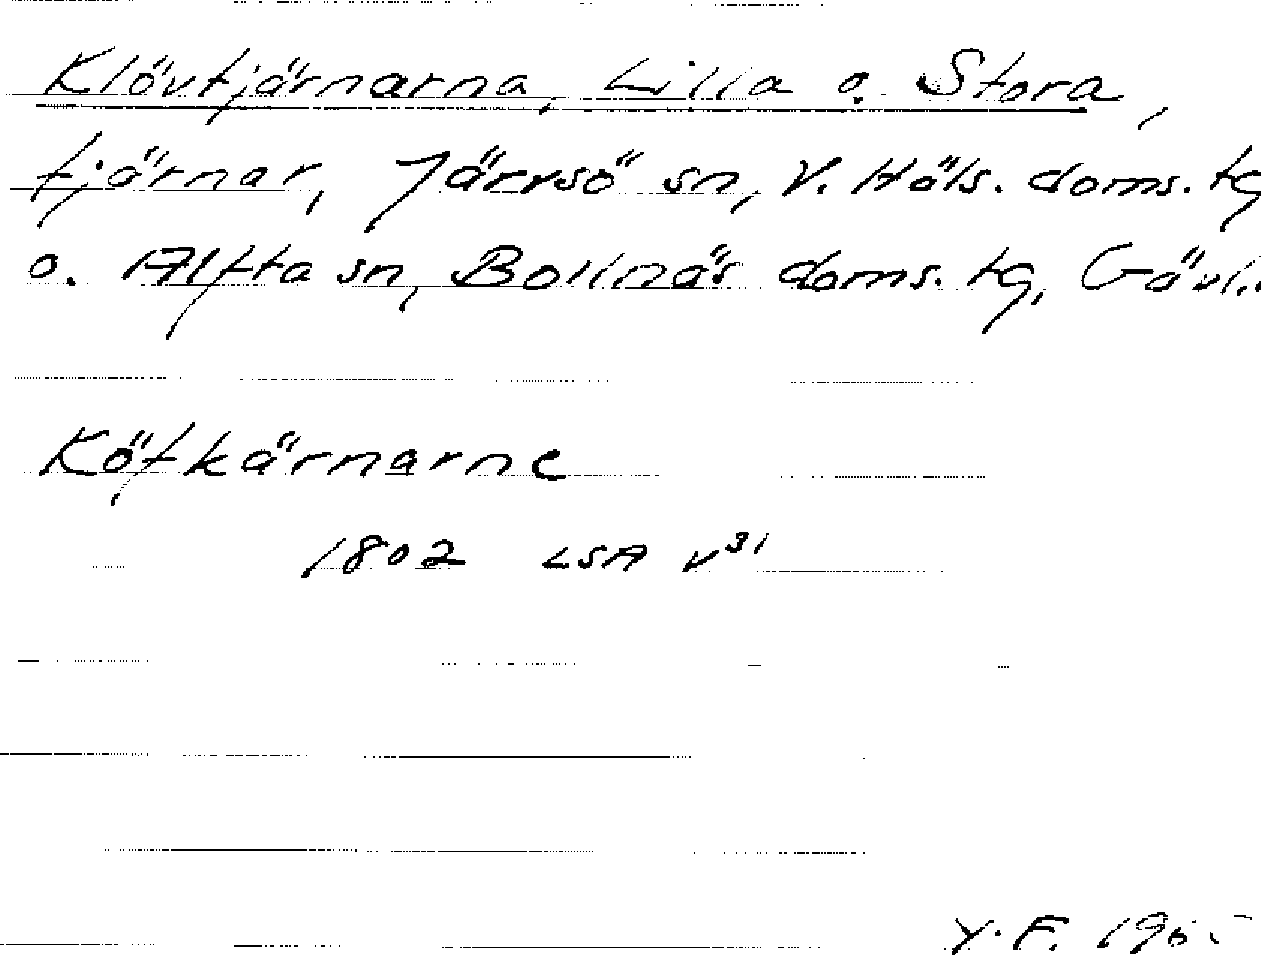 Klövtjärnarna, Lilla o. Stora,
tjärnar, Järvsö sn, V. Häls. doms. tg
o. Alfta sn, Bollnäs doms. tg, Gävl.
Köfkärnarne
1802 LSA V31
Y. F.